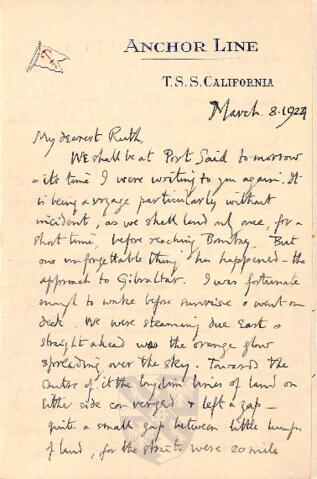 ANCHOR LINE
T.S.S. CALIFORNIA
March. 8. 1924
My dearest Ruth,
We shall be at Port Said tomorrow
& its time I were writing to you again. It
is being a voyage particularly without
incident, as we shall land only once, for a
short time, before reaching Bombay. But
one unforgettable thing has happened – the
approach to Gibraltar. I was fortunate
enough to wake before sunrise & went on
deck. We were steaming due East &
straight ahead was the orange glow
spreading over the sky. Towards the
centre of it the lines of land on
either side converged & left a gap –
quite a small gap between little humps
of land, for the straits were 20 miles